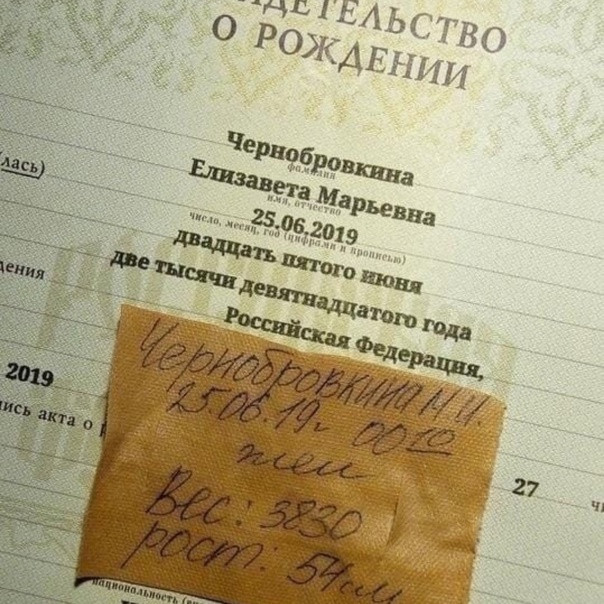 ИДЕТЕЛЬСТВО
О РОЖДЕНИИ
Чернобровкина
фамилия
лась)
Елизавета Марьевна
имя, отчество
25.06.2019
число, месяц, год (цифрами и прописью)
двадцать пятого июня
дения
две тысячи девятнадцатого года
Российская Федерация,
2019
ись акта о р
Чернобровкина М.И.
25.06.19г 00 10
жен
27
Вес: 3830
рост: 54см
национальность (вн